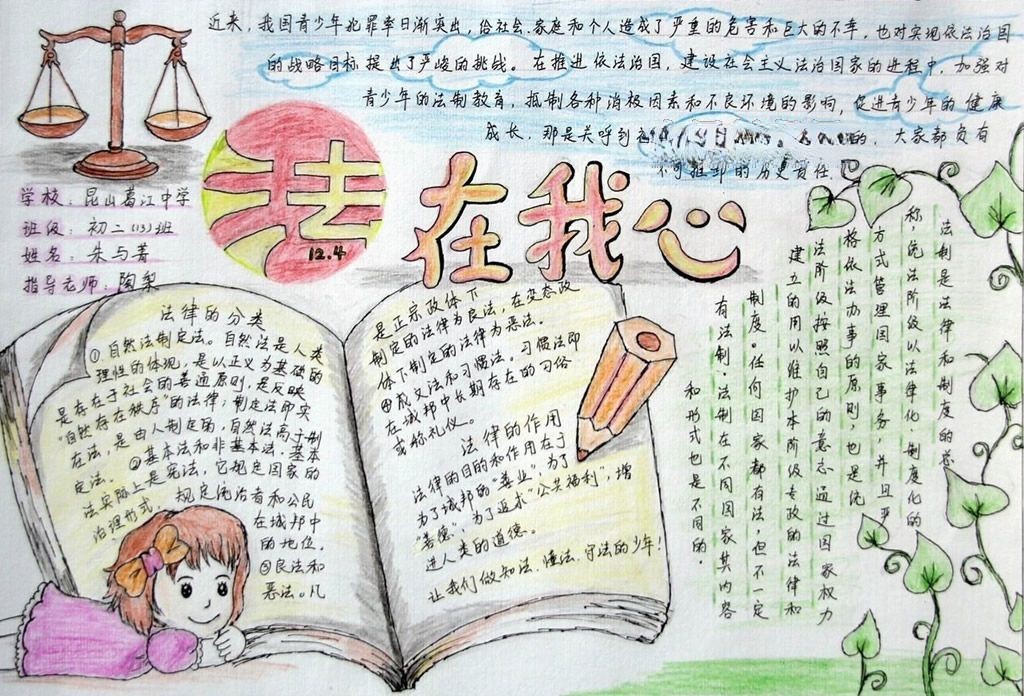 近来，我国青少年犯罪率日渐突出，给社会、家庭和个人造成了严重的危害和巨大的不幸，也对实现依法治国
的战略目标提出了严峻的挑战。在推进依法治国，建设社会主义法治国家的进程中，加强对
青少年的法制教育，抵制各种消极因素和不良环境的影响，促进青少年的健康
成长，那是关呼到
的，大家都负有
不可推卸的历史责任.
学校：昆山葛江中学
班级：初二(13)班
姓名：朱与菁
指导老师：陶梨
法
12.4
在我心
法律的分类
①自然法制定法。自然法是人类
理性的体现，是以正义为基础的
是存在于社会的普通原则，是反映
“自然存在秩序”的法律；制定法即实
在法，是由人制定的，自然法高于制
定法。②基本法和非基本法，基本
法实际上是宪法，它规定国家的
治理形式，规定统治者和公民
在城邦中
的地位。
③良法和
恶法。凡
是正宗政体下
制定的法律为良法，在变态政
体下制定的法律为恶法。
④成文法和习惯法。习惯法即
在城邦中长期存在的习俗
或称礼仪。
法律的作用
法律的目的和作用在于
为了城邦的“善业”，为了
“善德”，为了追求“公共福利”，增
进人类的道德。
让我们做知法、懂法、守法的少年！
法制是法律和制度的总
称，统治阶级以法律化、制度化的
方式管理国家事务，并且严
格依法办事的原则，也是统
治阶级按照自己的意志通过国家权力
建立的用以维护本阶级专政的法律和
制度。任何国家都有法，但不一定
有法制，法制在不同国家其内容
和形式也是不同的。